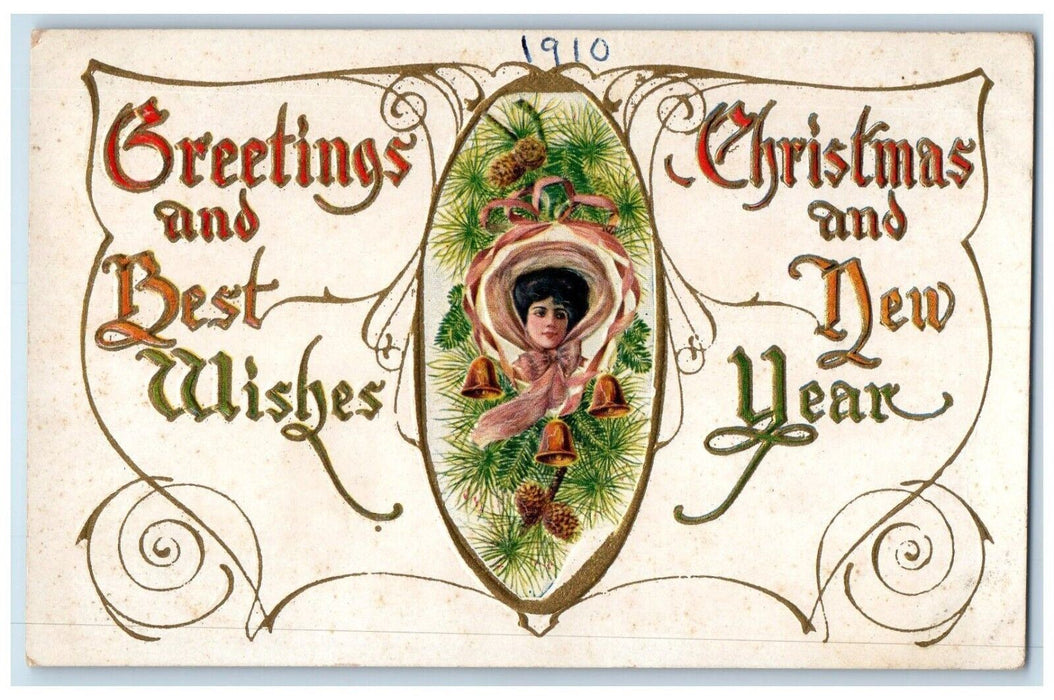 1910
Greetings
and
Best
Wishes
Christmas
and
New
Year